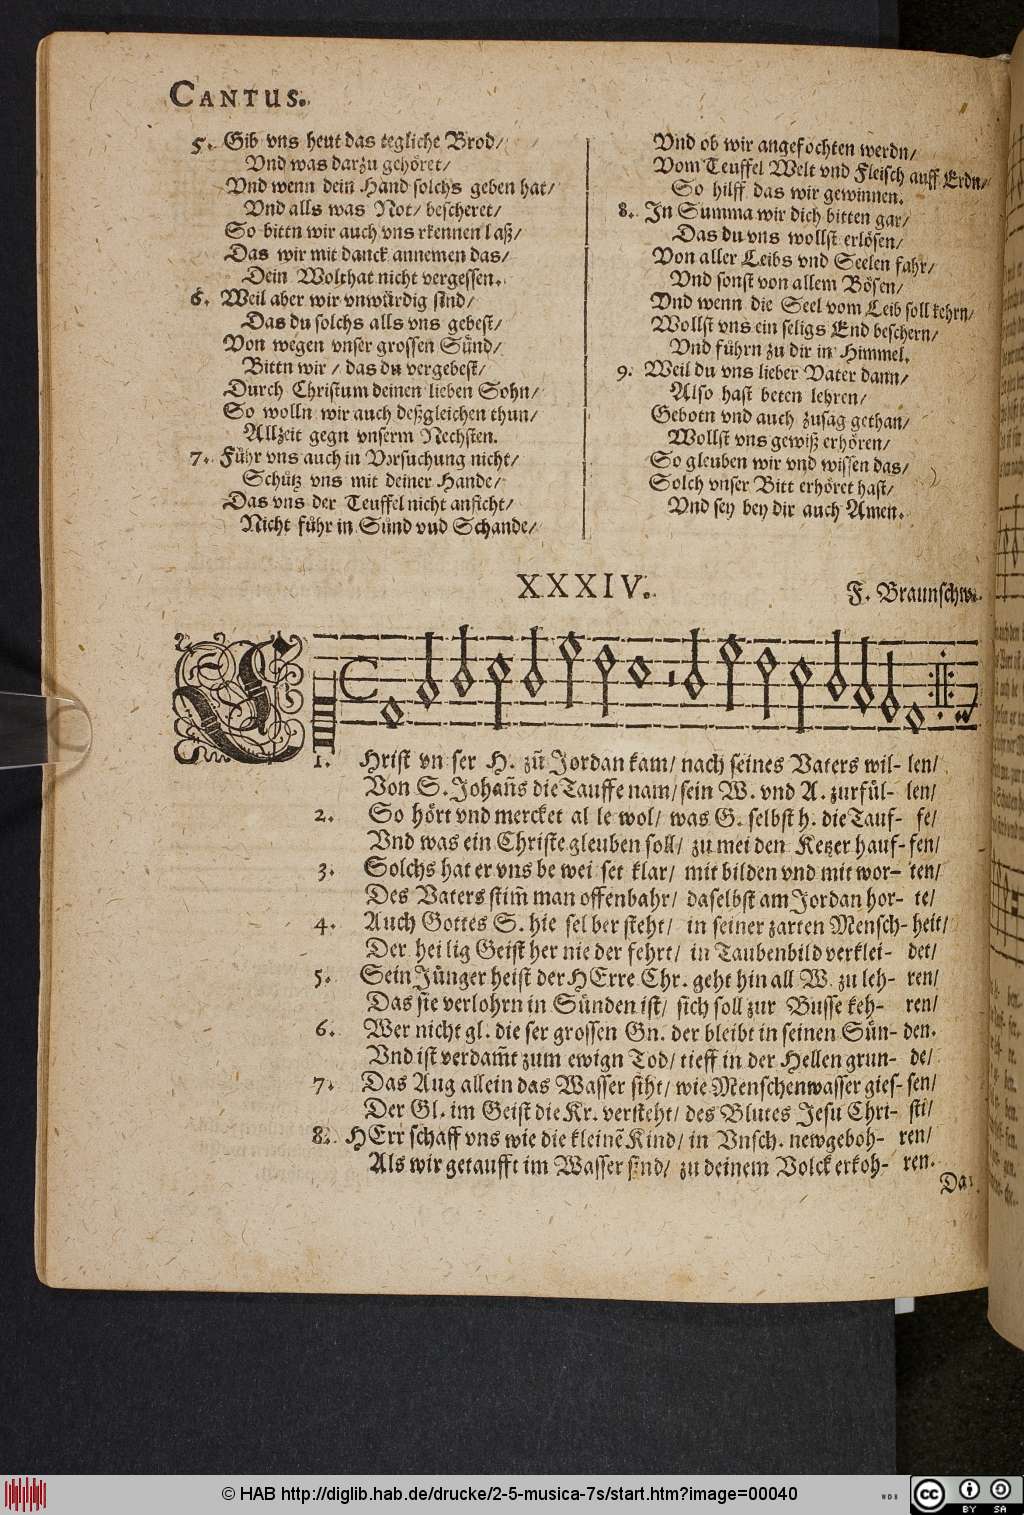 CANTUS.
5. Gib vns heut das tegliche Brod/
Vnd was darzu gehöret/
Vnd wenn dein Hand solchs geben hat/
Vnd alls was Not/ bescheret/
So bittn wir auch vns rkennen laß/
Das wir mit danck annemen das/
Dein Wolthat nicht vergessen.
6. Weil aber wir vnwürdig sind/
Das du solchs alls vns gebest/
Von wegen vnser grossen Sünd/
Bittn wir / das du vergebest/
Durch Christum deinen lieben Sohn/
So wolln wir auch deßgleichen thun/
Allzeit gegn vnserm Nechsten.
7. Führ vns auch in Versuchung nicht/
Schütz vns mit deiner Hande/
Das vns der Teuffel nicht anficht/
Nicht führ in Sünd vnd Schande/
Vnd ob wir angefochten werdn/
Vom Teuffel Welt vnd Fleisch auff Erdn/
So hilff das wir gewinnen.
8. In Summa wir dich bitten gar/
Das du vns wollst erlösen/
Von aller Leibs vnd Seelen fahr/
Vnd sonst von allem Bösen/
Vnd wenn die Seel vom Leib soll kehrn/
Wollst vns ein seligs End beschern/
Vnd führn zu dir in Himmel.
9. Weil du vns lieber Vater dann/
Also hast beten lehren/
Gebotn vnd auch zusag gethan/
Wollst vns gewiß erhören/
So gleuben wir vnd wissen das/
Solch vnser Bitt erhöret hast/
Vnd sey bey dir auch Amen.
XXXIV.
F. Braunschw.
C
1. Hrist vn ser H. zũ Jordan kam/ nach seines Vaters wil- len/
Von S. Johañs die Tauffe nam/ sein W. vnd A. zurfül- len/
2. So hört vnd mercket al le wol/ was G. selbst h. die Tauf- fe/
Vnd was ein Christe gleuben soll/ zu mei den Ketzer hauf- fen/
3. Solchs hat er vns be wei set klar/ mit bilden vnd mit wor- ten/
Des Vaters stim̃ man offenbahr/ daselbst am Jordan hor- te/
4. Auch Gottes S. hie sel ber steht/ in seiner zarten Mensch- heit/
Der hei lig Geist her nie der fehrt/ in Taubenbild verklei- det/
5. Sein Jünger heist der HErre Chr. geht hin all W. zu leh- ren/
Das sie verlohrn in Sünden ist/ sich soll zur Busse keh- ren/
6. Wer nicht gl. die ser grossen Gn. der bleibt in seinen Sün- den.
Vnd ist verdam̃t zum ewign Tod/ tieff in der Hellen grun- de/
7. Das Aug allein das Wasser siht/ wie Menschenwasser gies- sen/
Der Gl. im Geist die Kr. versteht/ des Blutes Jesu Chri- sti/
8. HErr schaff vns wie die kleinẽ Kind/ in Vnsch. newgeboh- ren/
Als wir getaufft im Wasser sind/ zu deinem Volck erkoh- ren.
Da
© HAB http://diglib.hab.de/drucke/2-5-musica-7s/start.htm?image=00040
WDB
cc BY SA